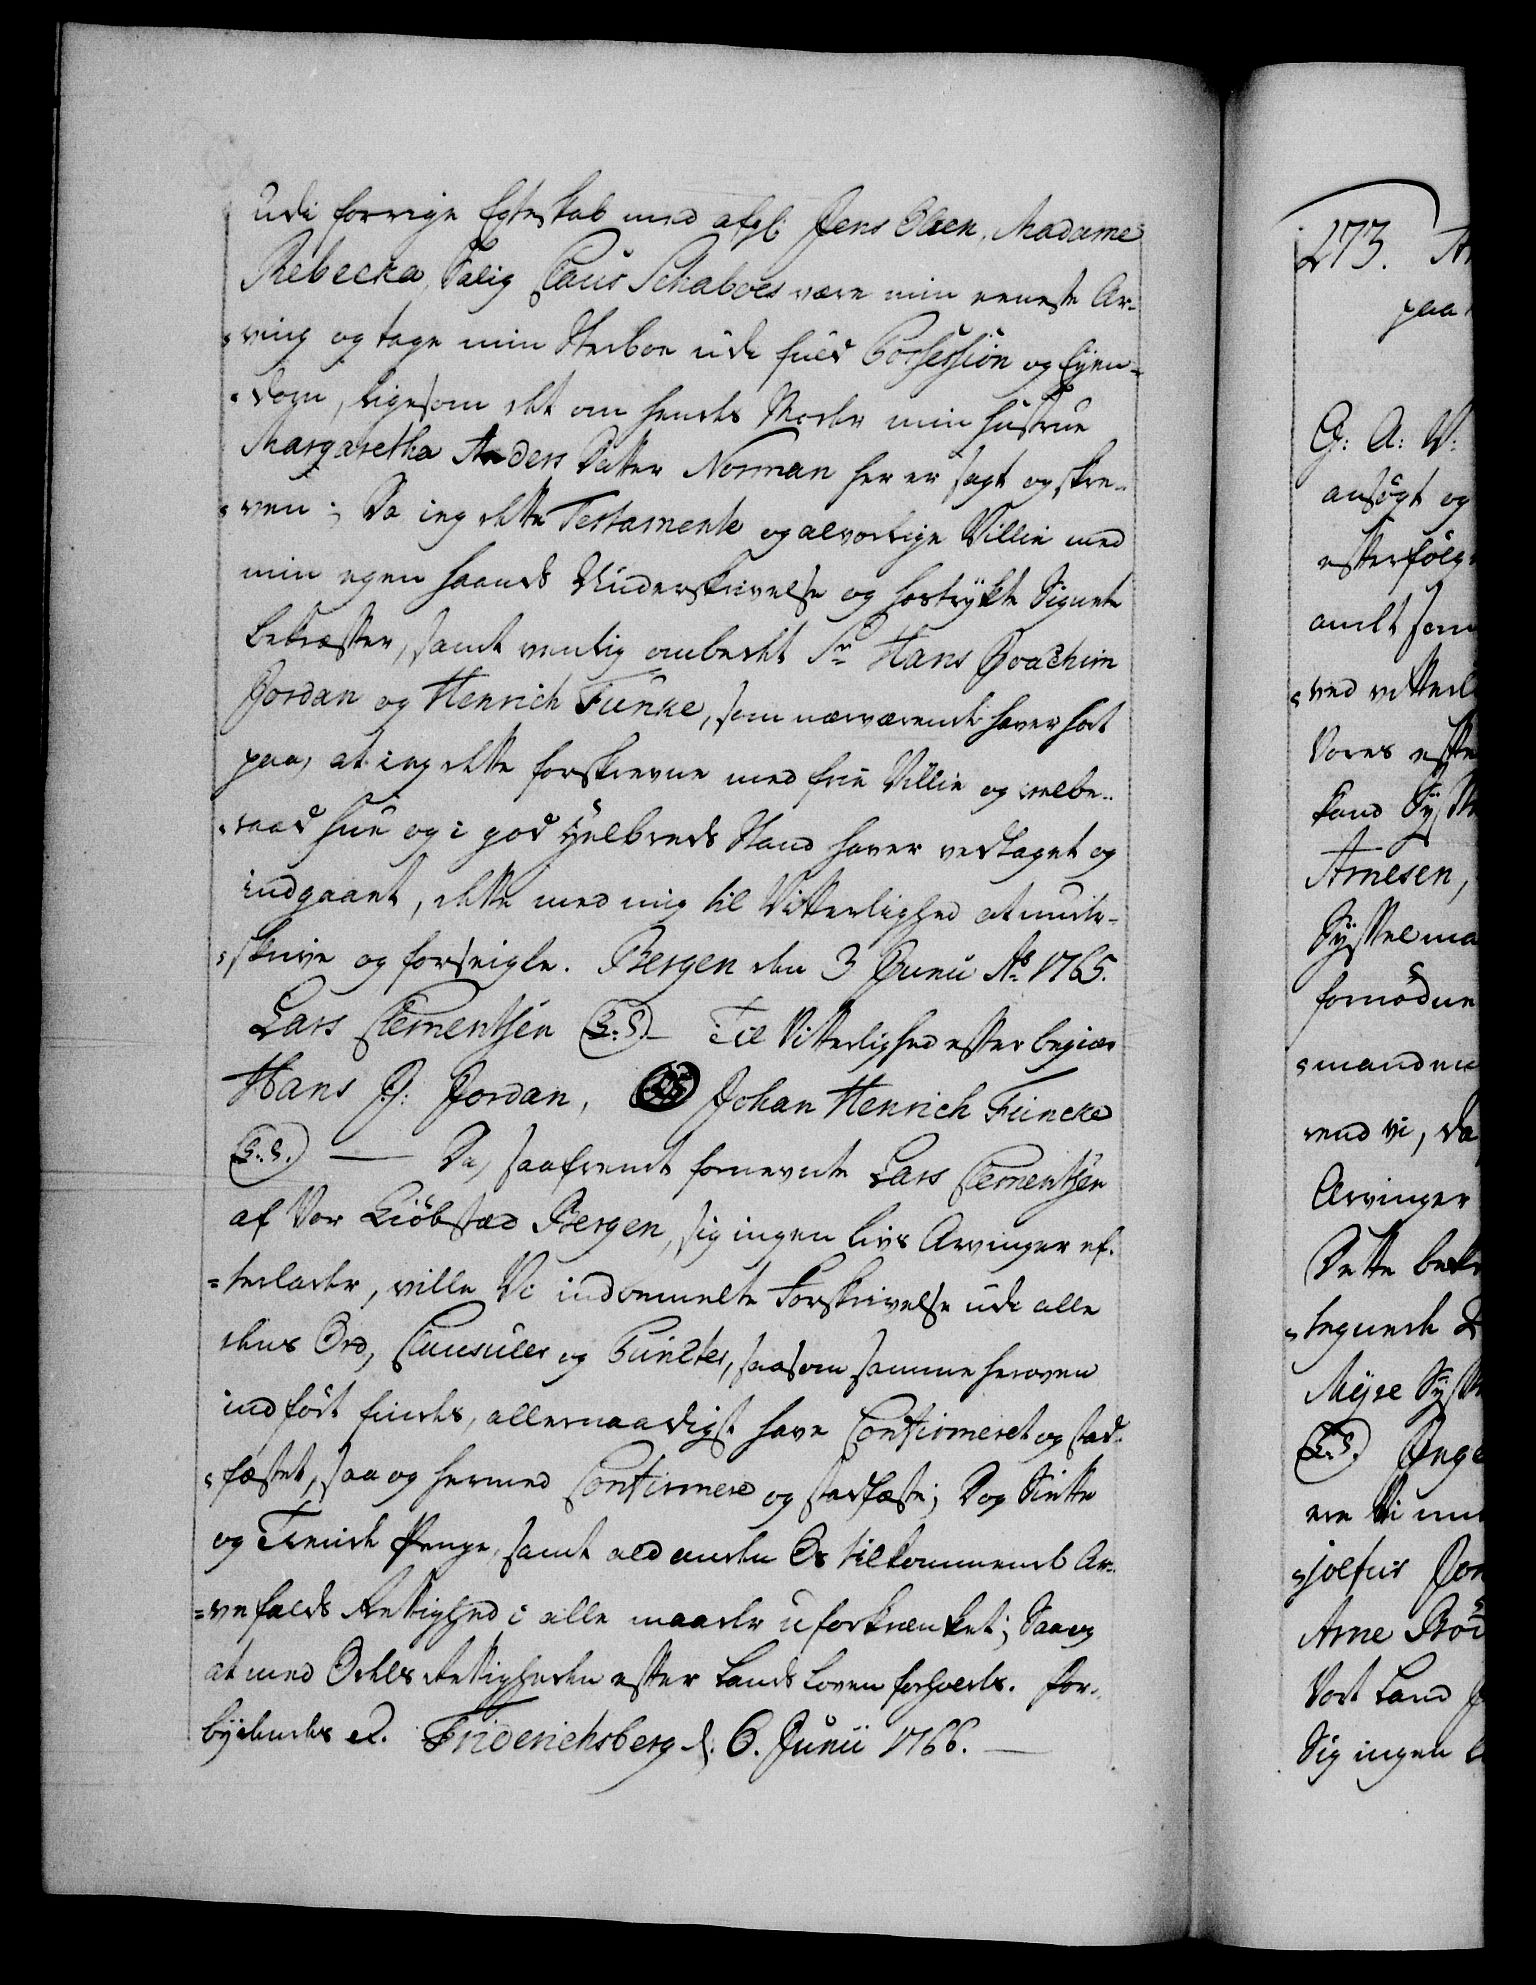 udi forrige Egteskab med afgl: Jens Olsen, Madame
Rebecka, Salig Claus Schaboes være min eeneste Ar-
ving og tage min Sterboe udi fuld Possession og Eyen-
dom, ligesom det om hendes Moder min Hustrue
Margaretha Anders Datter Norman her er sagt og skre-
ven; Da ieg dette Testamente og alvorlige Villie med
min egen haands Underskrivelse og hostrykte Signete
bekræfter, samt venlig ombedet Sr Hans Joachim
Jordan og Henrich Funcke, som nærværende haver hørt
paa, at ieg dette forskrevne med frie Villie og velbe-
raad Hue og i god Helbreds Stand haver vedtaget og
indgaaet, dette med mig til Vitterlighed at under-
skrive og forseigle. Bergen den 3 Junii Ao 1765.
Lars Clementsen (L.S.) – Til Vitterlighed efter begiær
Hans J: Jordan, Johan Henrich Funcke
(L.S.) — Da, saafremt fornevnte Lars Clementsen
af Vor Kiöbstæd Bergen, sig ingen Livs Arvinger ef-
terlader, ville Vi indbemelte Forskrivelse udi alle
dens Ord, Clausuler og Puncter, saasom samme heroven
indført findes, allernaadigst have Confirmeret og stad-
fæstet, saa og hermed Confirmere og stadfæste; Dog Siette
og Tiende Penge, samt ald anden Os tilkommende Ar-
vefalds Rettighed i alle maader uforkrænket; Saa og
at med Odels Rettigheden efter Lands Loven forholdes. For-
bydendes &. Friderichsberg d: 6. Junii 1766. —
273.
paa
G: A: V:
ansøgt og
efterfølg
andet som
Vores efter
Arnesen,
Sysselma
fornødne
manden
vend vi, da
Arvinger
Dette bekr
tegnede
(L.S.) Inge
Arne
Vort Land
Sig ingen